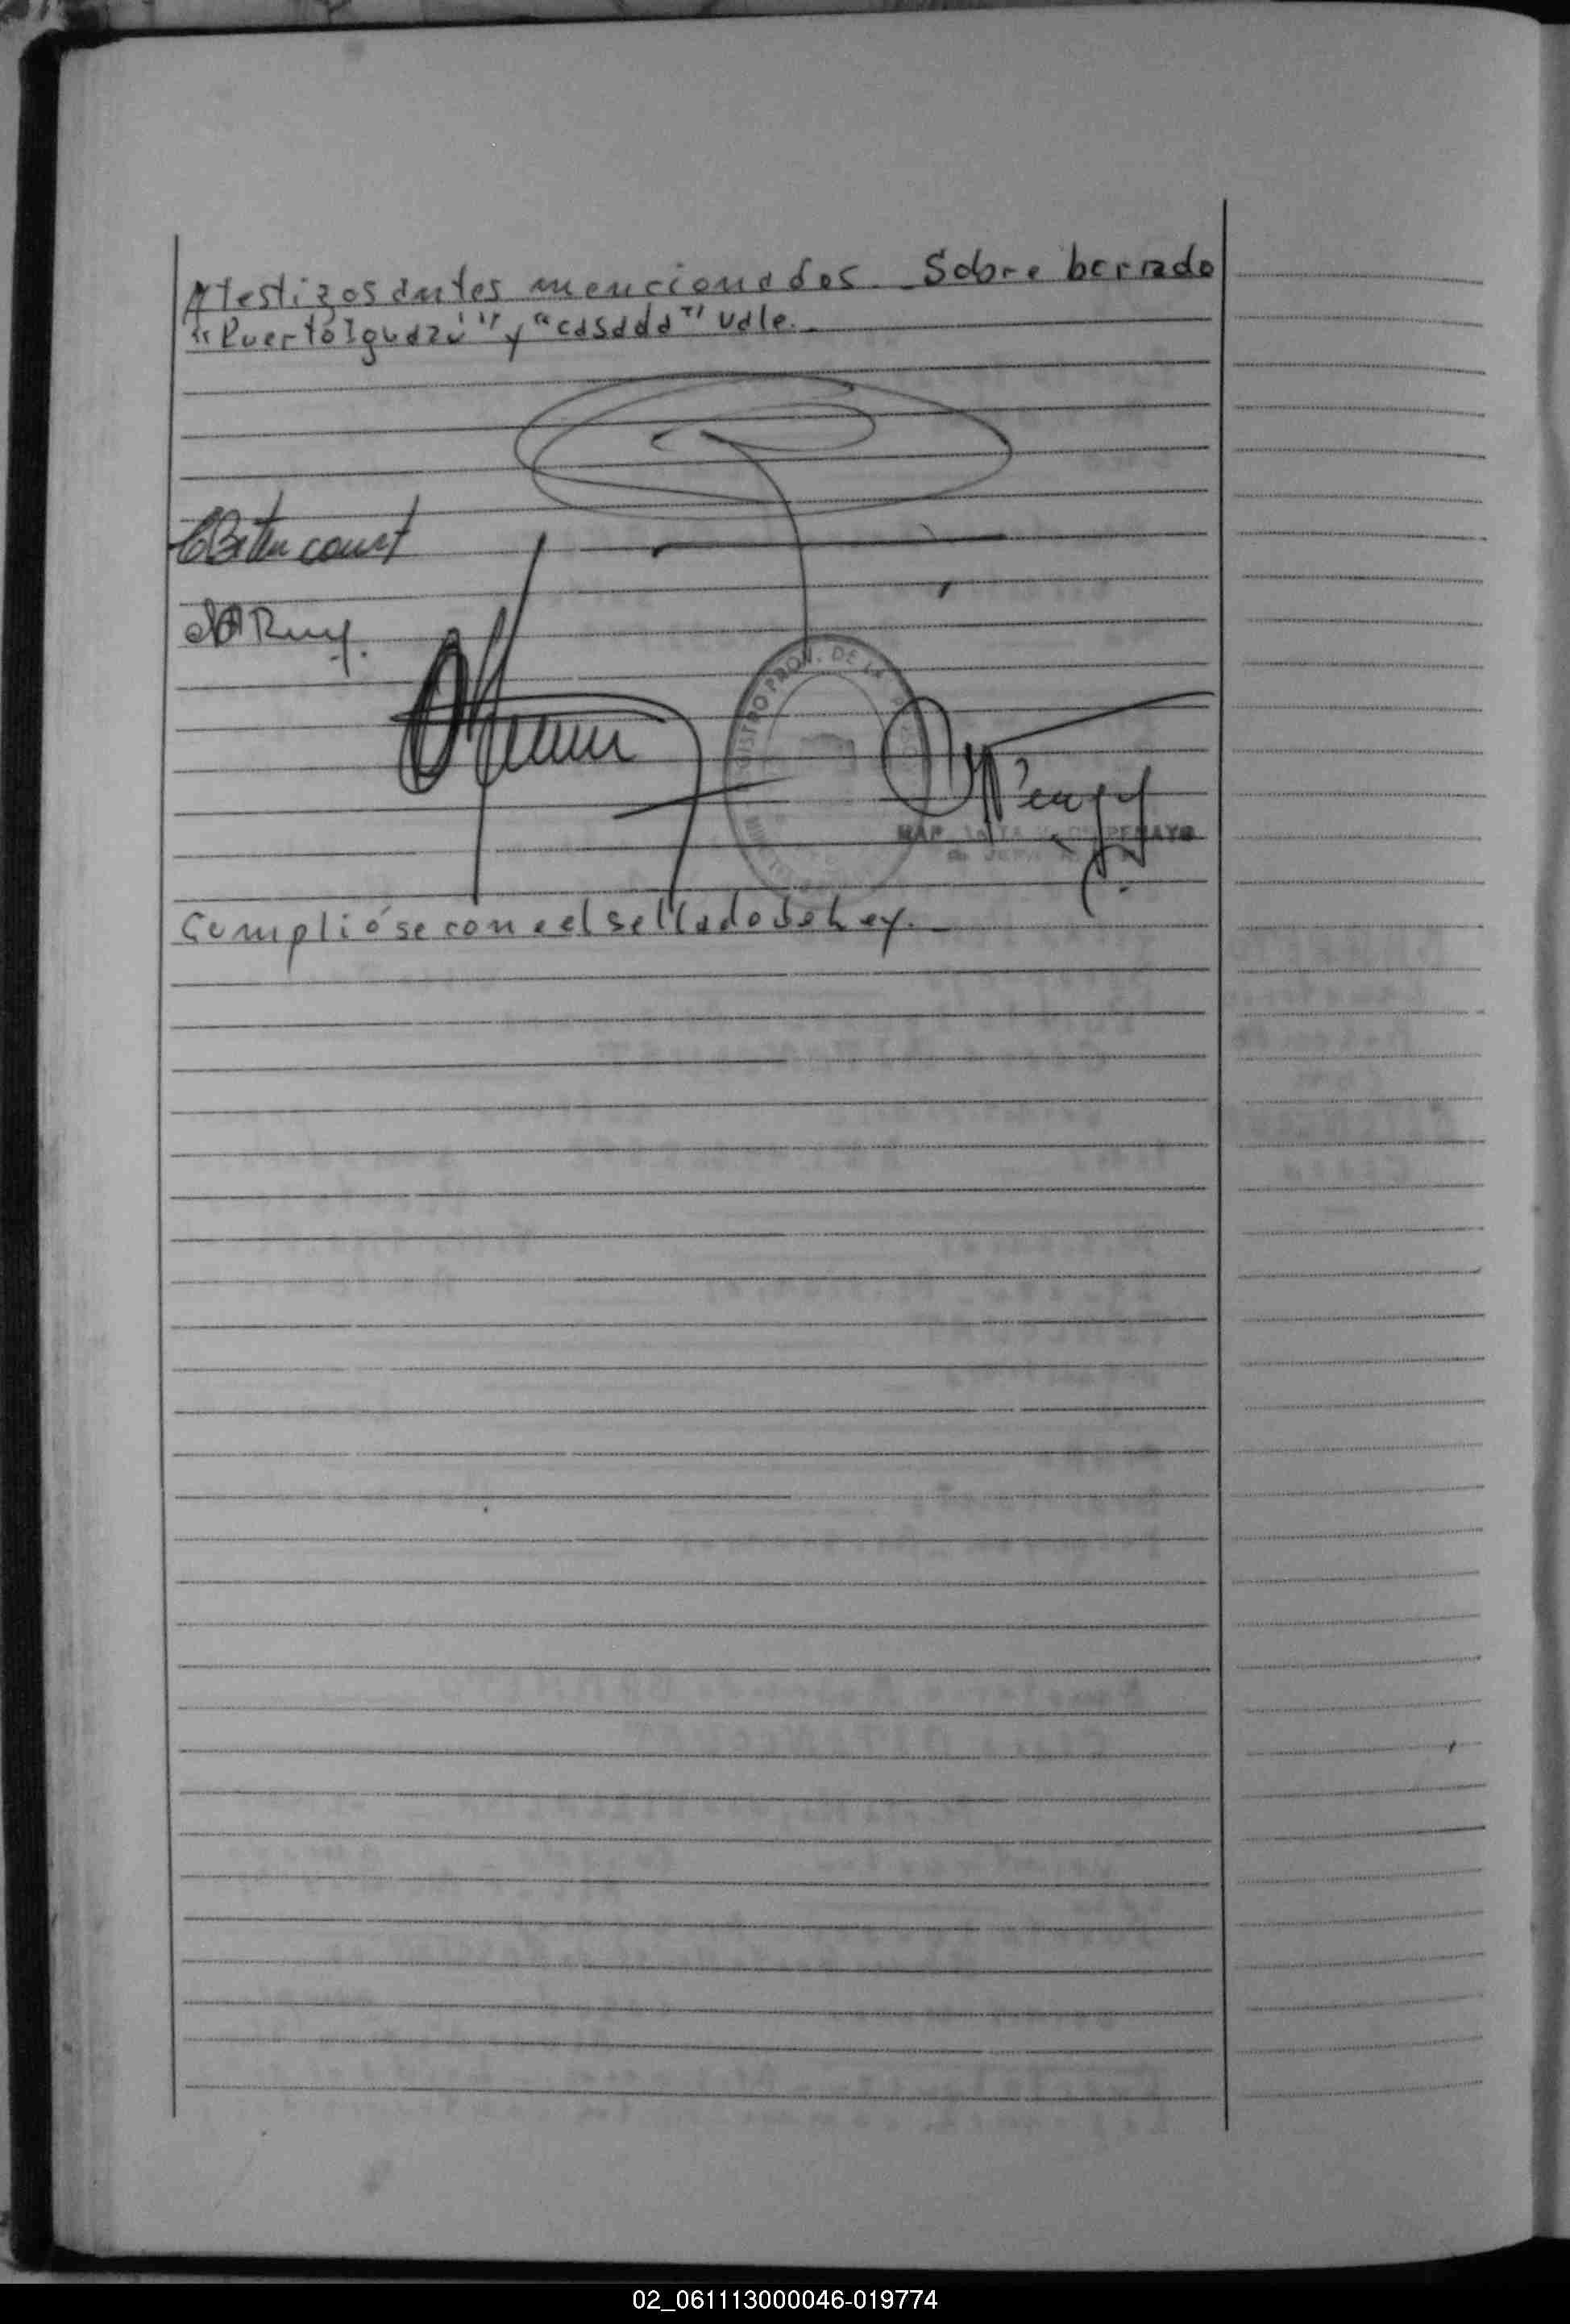 testigos antes mencionados. Sobre borrado
"Puerto Iguazú" y "casada" vale.-
CBetancourt
REGISTRO PROV. DE LA
Cumplióse con el sellado de Ley.-
02_061113000046-019774